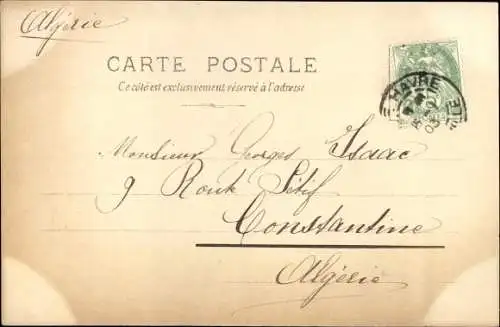 Algérie
CARTE POSTALE
Ce côté est exclusivement réservé à l'adresse
HAVRE
Monsieur Georges Isaac
9 Route Sétif
Constantine
Algérie